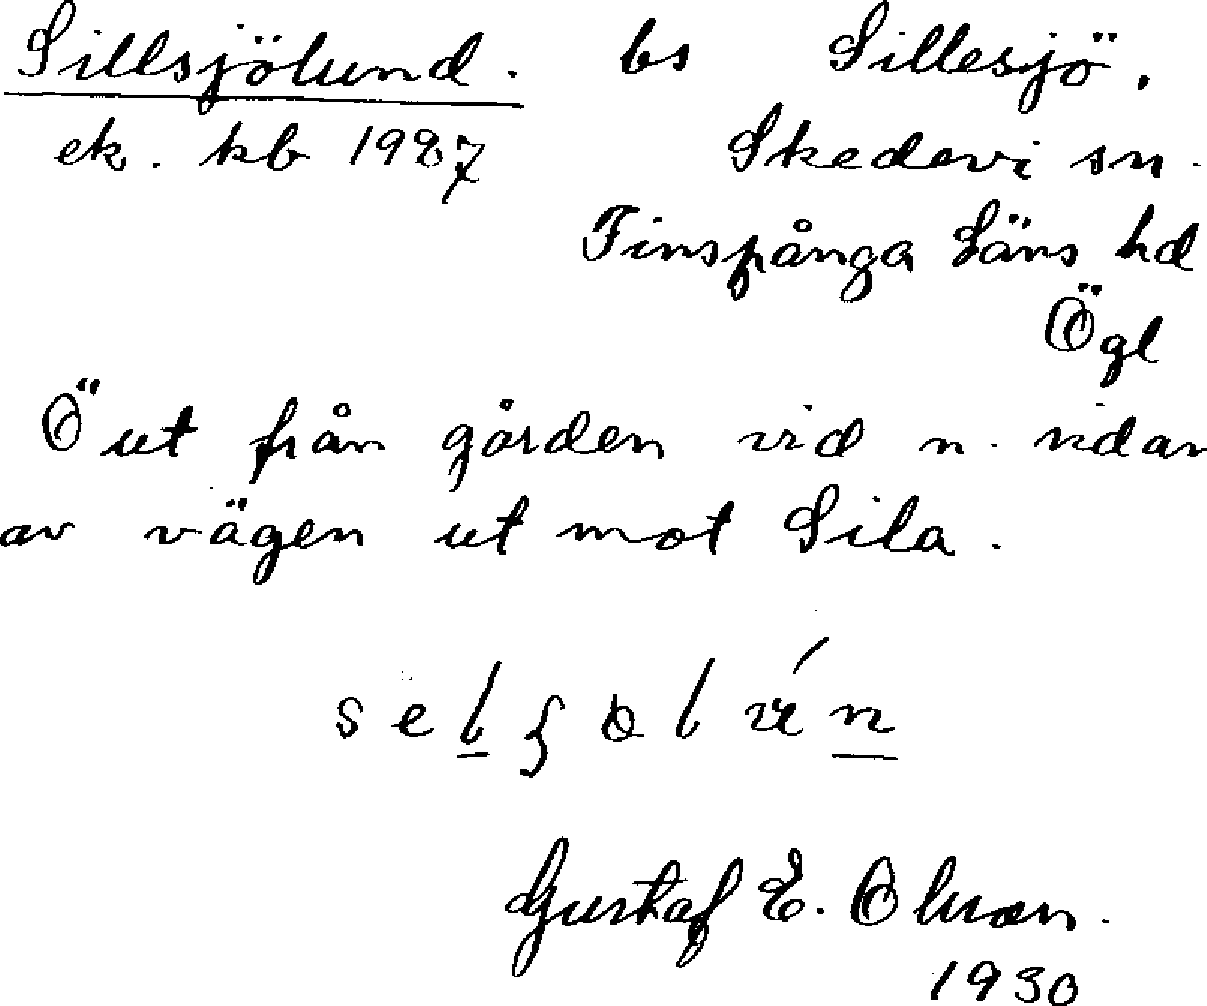 Sillsjölund. bs Sillesjö.
ek. kb 1987 Skedevi sn.
Finspånga Läns hd
Ögl
Ö ut från gården vid n. sidan
av vägen ut mot Sila.
Gustaf E. Olsson.
1930